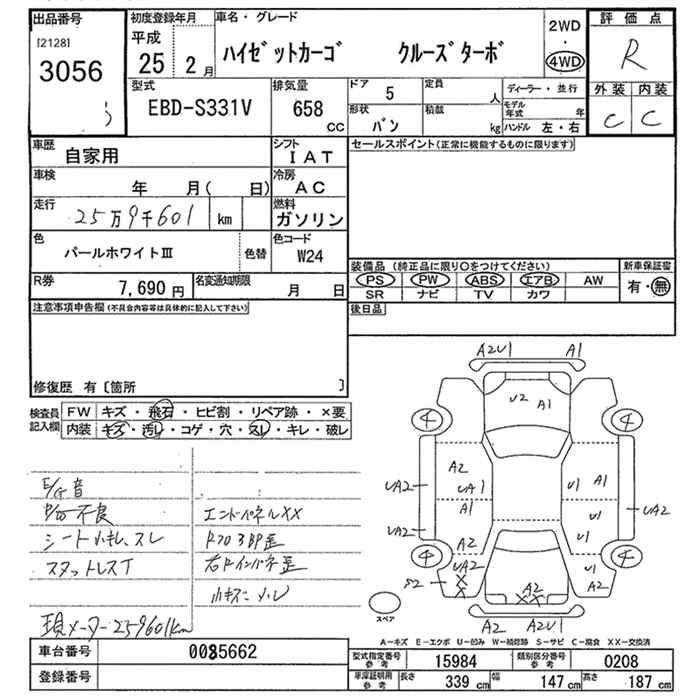 出品番号
[2128]
3056
初度登録年月
平成
25 2月
車名・グレード
ハイゼットカーゴ クルーズターボ
2WD
・
4WD
評価点
R
外装 内装
C C
型式
EBD-S331V
排気量
658
CC
ドア
5
定員
人
形状
バン
積載
kg
ディーラー・並行
モデル年式
年
ハンドル 左・右
車歴
自家用
シフト
IAT
車検
年 月( 日)
冷房
AC
走行
25万9千601 km
燃料
ガソリン
色
パールホワイトⅢ
色替
色コード
W24
R券
7,690円
名変通知期限
月 日
セールスポイント(正常に機能するものに限ります)
装備品 (純正品に限り○をつけてください)
PS PW ABS エアB AW
SR ナビ TV カワ
新車保証書
有・無
後日品
注意事項申告欄(不具合内容等は具体的に記入して下さい)
修復歴 有〔箇所 〕
検査員記入欄
FW キズ・飛石・ヒビ割・リペア跡・×要
内装 キズ・汚レ・コゲ・穴・スレ・キレ・破レ
E/G音
P/S不良
シート小キレ、スレ
スタットレスT
エンドパネルXX
右ドインパネ歪
現メーター259601km
A2U1 A1
U2 A1
4 4
A2
UA1 UA2
A1
UA2
U1 A1
U1
UA2
A2
UA2
4 4
U1
A2
X
X
A2
XX
A2 A2U1
スペア
A-キズ E-エクボ U-凹み W-補修跡 S-サビ C-腐食 XX-交換済
車台番号
0085662
登録番号
型式指定番号
参考
15984
類別区分番号
参考
0208
車庫証明用
参考
長さ
339 cm
幅
147 cm
高さ
187 cm